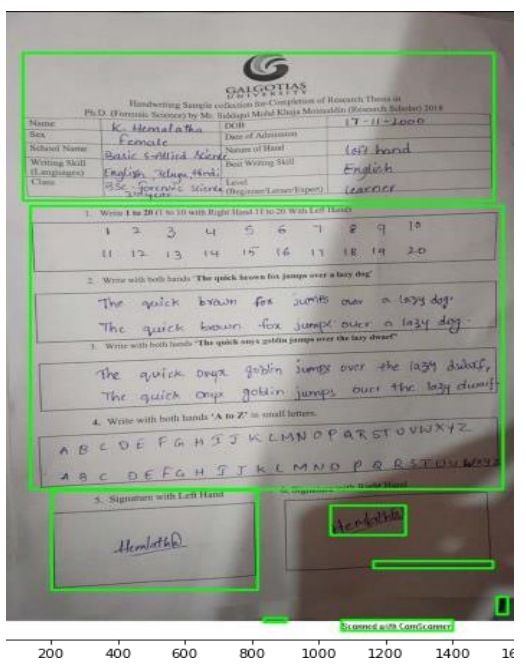 GALGOTIAS
UNIVERSITY
Handwriting Sample collection for Completion of Research Thesis in
Ph.D. (Forensic Science) by Mr. Siddiqui Mohd Khaja Moinuddin (Research Scholar) 2018
Name K. Hemalatha DOB 17-11-2000
Sex Female Date of Admission
School Name Basic & Allied Science Nature of Hand left hand
Writing Skill (Languages) English, Telugu, Hindi Best Writing Skill English
Class BSc. forensic science Level (Beginner/Learner/Expert) Learner
1. Write 1 to 20 (1 to 10 with Right Hand 11 to 20 With Left Hand)
1 2 3 4 5 6 7 8 9 10
11 12 13 14 15 16 17 18 19 20
2. Write with both hands 'The quick brown fox jumps over a lazy dog'
The quick brown fox jumps over a lazy dog.
The quick brown fox jumps over a lazy dog.
3. Write with both hands 'The quick onyx goblin jumps over the lazy dwarf'
The quick onyx goblin jumps over the lazy dwarf,
The quick onyx goblin jumps over the lazy dwarf
4. Write with both hands 'A to Z' in small letters.
A B C D E F G H I J K L M N O P Q R S T U V W X Y Z
A B C D E F G H I J K L M N O P Q R S T U V W X Y Z
5. Signature with Left Hand 6. Signature with Right Hand
Hemlatha Hemlatha
Scanned with CamScanner
200 400 600 800 1000 1200 1400